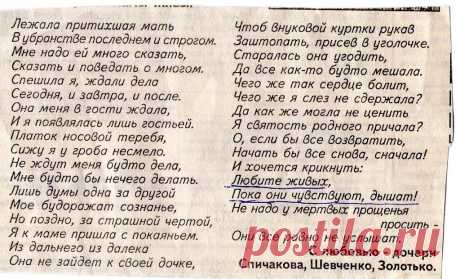 Лежала притихшая мать
В убранстве последнем и строгом.
Мне надо ей много сказать,
Сказать и поведать о многом.
Спешила я, ждали дела
Сегодня, и завтра, и после.
Она меня в гости ждала,
И я появлялась лишь гостьей.
Платок носовой теребя,
Сижу я у гроба несмело.
Не ждут меня будто дела,
Мне будто бы нечего делать.
Лишь думы одна за другой
Мое будоражат сознанье,
Но поздно, за страшной чертой,
Я к маме пришла с покаяньем.
Из дальнего из далека
Она не зайдет к своей дочке,
Чтоб внуковой куртки рукав
Заштопать, присев в уголочке.
Старалась она угодить,
Да все как-то будто мешала.
Чего же так сердце болит,
Чего же я слез не сдержала?
Да как же могла не ценить
Я святость родного причала?
О, если бы все возвратить,
Начать бы все снова, сначала!
И хочется крикнуть:
Любите живых,
Пока они чувствуют, дышат!
Не надо у мертвых прощенья
просить -
Они все равно не услышат.
С любовью - дочери
Спичакова, Шевченко, Золотько.